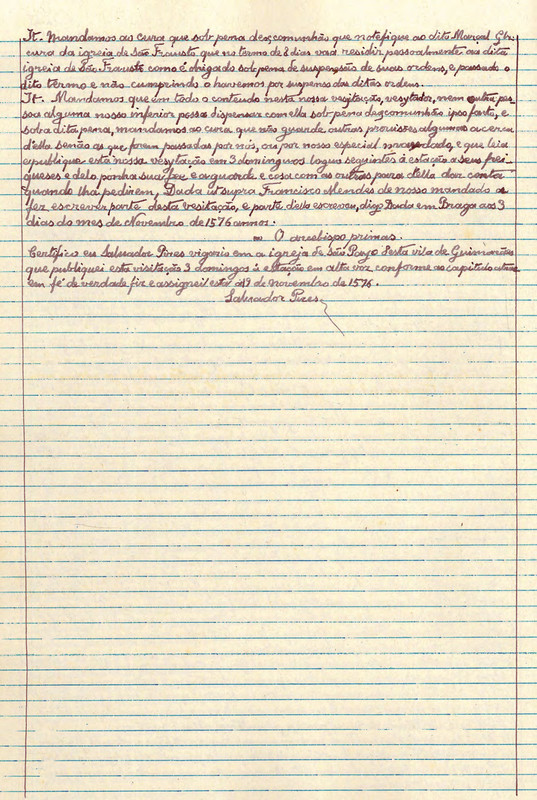 It. Mandamos ao cura que sob pena descomunhão que notefique ao dito Marçal Glz
cura da igreja de São Fraústo que no termo de 8 dias vaá residir pessoalmente aá dita
igreja de São Fraústo como é obrigado sob pena de suspensão de suas ordens, e passado o
dito termo e não cumprindo o havemos por suspenso das ditas ordens.
It. Mandamos que em todo o conteudo nesta nossa vesytação, vesytador, nem outra pes-
soa alguma nosso inferior possa dispensar com ella sob pena descomunhão ipso facto, e
sob a dita pena, mandamos ao cura que não guarde outras provisões algumas acerca
d'ella senão as que forem passadas por nós, ou por nosso especial mandado, e que leia
e publique esta nossa vesytação em 3 domingos logua seguintes á estação a seus frei-
gueses e delo ponha sua fee, e a guarde e cosa com as outras para della dar conta
quando lha pedirem, Dada ut supra Francisco Mendes de nosso mandado a
fez escrever parte desta vesitação, e parte della escreveu, digo Dada em Braga aos 3
dias do mes de Novembro de 1576 annos.
O arcebispo primas.
Certifico eu Salvador Pires vigario em a igreja de São Payo desta vila de Guimarães
que publiquei esta visitação 3 domingos á estação em alta voz conforme ao capitulo
em fé de verdade fiz e assignei estar a 19 de novembro de 1576.
Salvador Pires